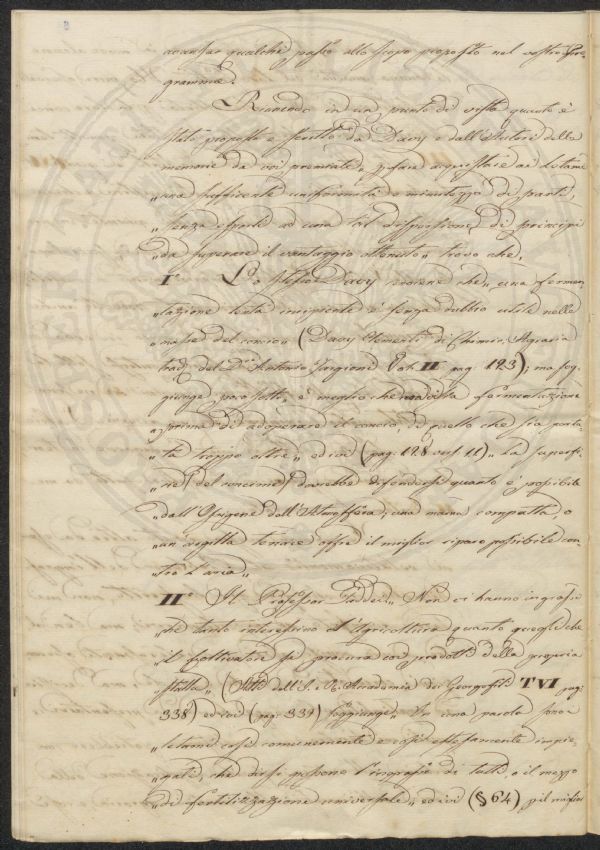 avanzar qualche passo allo scopo proposto nel vostro Pro-
gramma.
Riunendo in un punto di vista quanto è
stato proposto e scritto da Davy e dall'Autore della
memoria da voi premiata, per fare acquistare al letame
"una sufficente uniformità e minutezza di parti,
"senza esporlo ad una tal dispersione di principi
"da superare il vantaggio ottenuto" trovo che,
I° Lo stesso Davy conviene che "una fermen
"tazione lenta incipiente è senza dubbio utile nella
"massa del concio" (Davy Elementi di Chimica Agraria
trad. del D.r Antonio Targioni Vol. II pag. 123); ma sog-
giunge poco sotto, "è meglio che non abbia fermentazione
"prima di adoperare il concio, di quello che sia porta
"ta troppo oltre" ed ivi (pag. 128 vers. 11) "La superfi-
cie (del concime) dovrebbe difendersi quanto è possibile
"dall'Ossigene dell'Atmosfera; una marna compatta o
"un argilla tenace offre il miglior riparo possibile con-
"tro l'aria"
II° Il Professor Taddei "Non ci hanno ingrassi
"che tanto interessino l'Agricoltura quanto quegli che
"il coltivatore si procura coi prodotti della propria
"stalla" (Atti dell'I. e R. Accademia dei Georgofili T VI pag.
338) ed ivi (pag. 339) soggiunge "In una parola sono i
"letami così comunemente e così estesamente impie-
"gati, che dirsi possono l'ingrasso di tutti, o il mezzo
"di fertilizzazione universale" ed ivi (§ 64) "il miglior